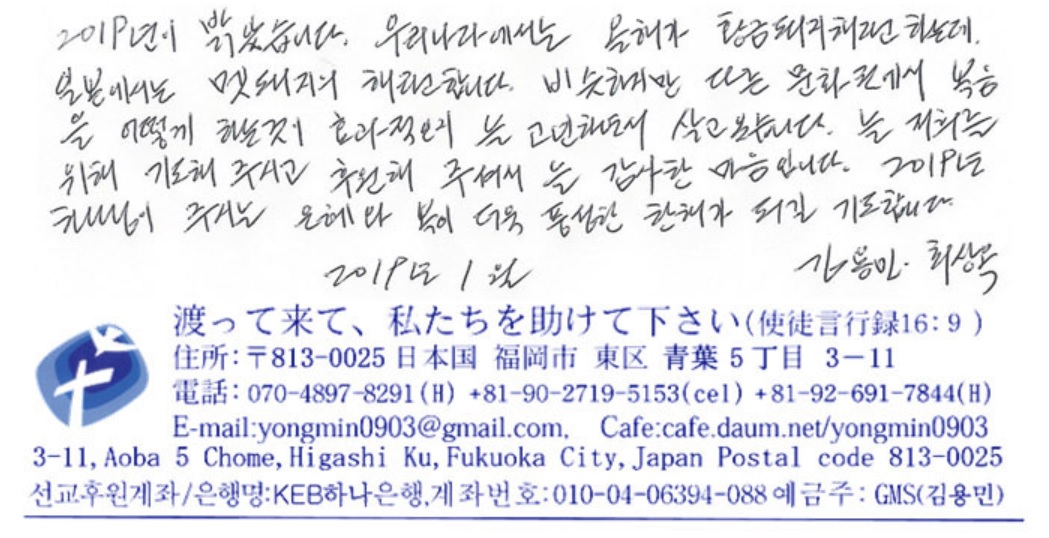 2019년이 밝았습니다. 우리나라에서는 올해가 황금돼지해라고 하는데.
일본에서는 멧돼지의 해라고합니다. 비슷하지만 다른 문화권에서 복음
을 어떻게 하는것이 효과적인지 늘 고민하면서 살고 있습니다. 늘 저희를
위해 기도해 주시고 후원해 주셔서 늘 감사한 마음입니다. 2019년도
주님이 주시는 은혜와 복이 더욱 풍성한 한해가 되길 기도합니다.
2019년 1월 김용민.
渡って来て、私たちを助けて下さい(使徒言行録16:9)
住所:〒813-0025 日本国 福岡市 東区 青葉 5丁目 3-11
電話: 070-4897-8291(H) +81-90-2719-5153(cel) +81-92-691-7844(H)
E-mail:yongmin0903@gmail.com, Cafe:cafe.daum.net/yongmin0903
3-11, Aoba 5 Chome, Higashi Ku, Fukuoka City, Japan Postal code 813-0025
선교후원계좌/은행명:KEB하나은행,계좌번호:010-04-06394-088 예금주: GMS(김용민)